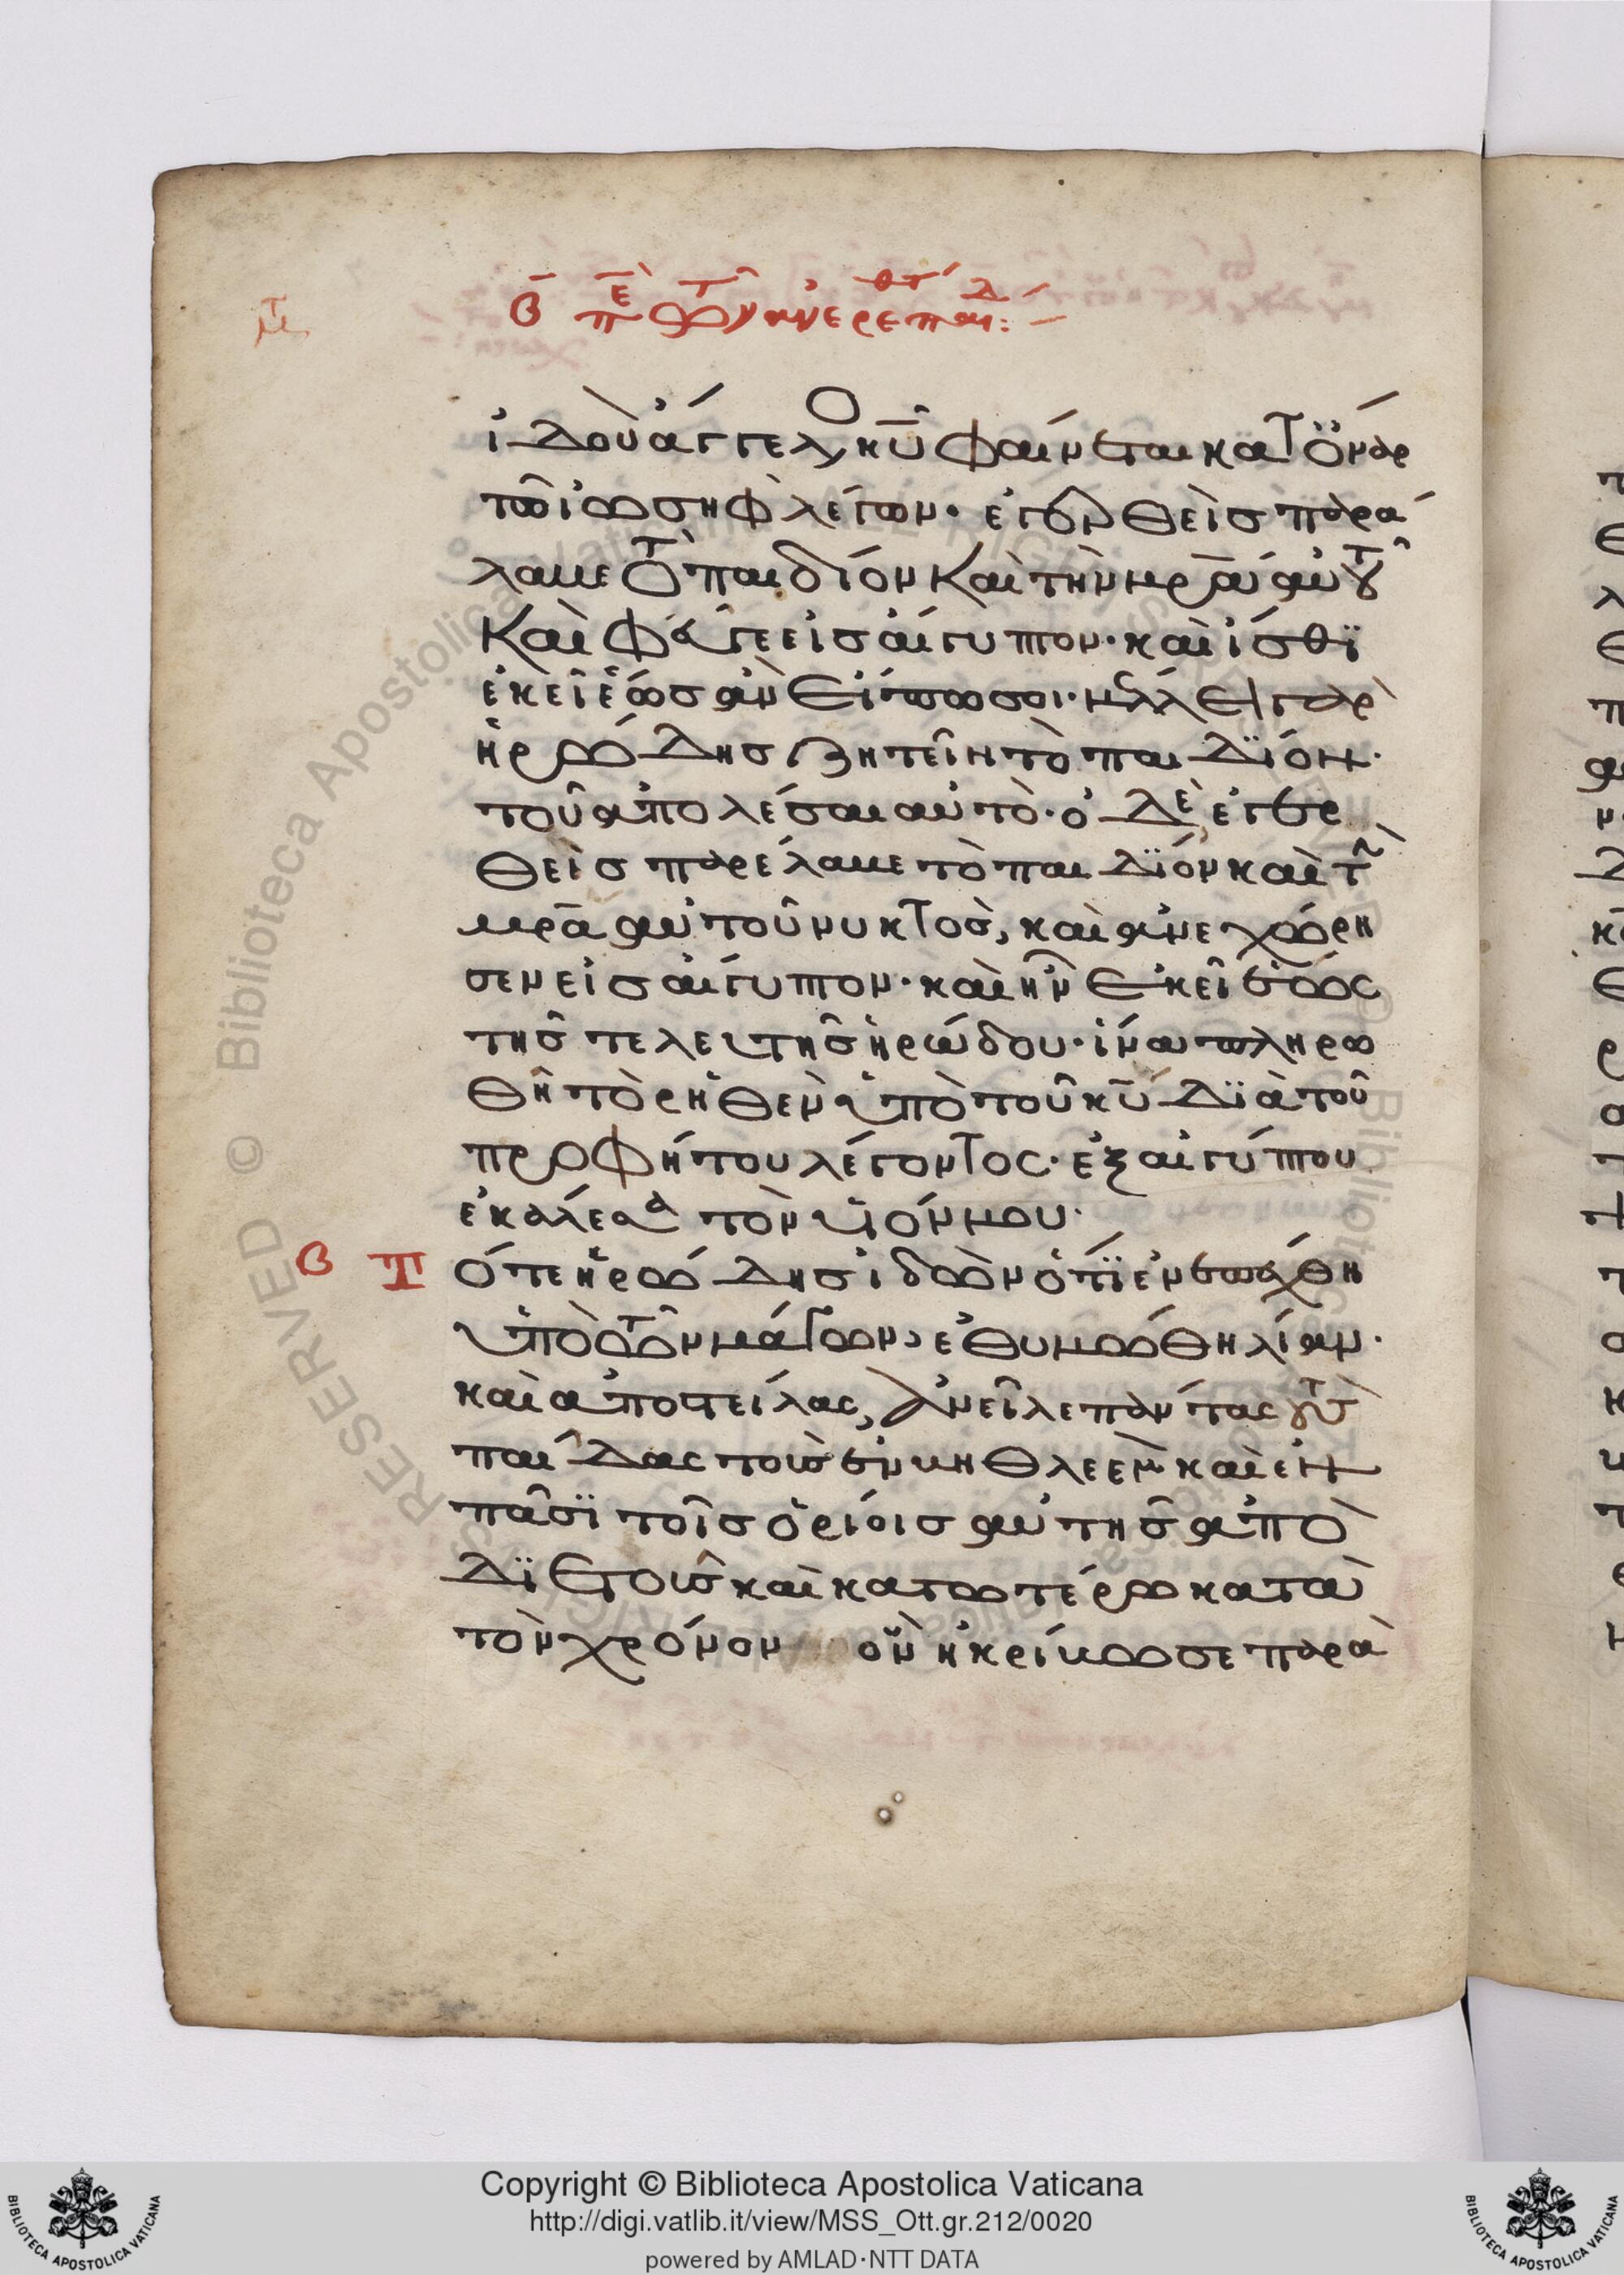 β πε τῶν ἀναιρεθέντων παίδ:
ἰδοὺ ἄγγελος κυ φαίνεται κατ ὄναρ
τῶ ἰωσηφ λέγων· ἐγερθεὶς παρά
λαβε τὸ παιδίον καὶ τὴν μρα αὐτοῦ
καὶ φεῦγε εἰς αἴγυπτον· καὶ ἴσθϊ
ἐκεῖ ἕως ἂν εἴπω σοι· μέλλει γὰρ
ἡρώδης ζητεῖν τὸ παιδΐον·
τοῦ ἀπολέσαι αὐτὸ· ὁ δὲ ἐγερ
θεὶς παρέλαβε τὸ παιδΐον καὶ τὴν
μρα αὐτοῦ νυκτὸς, καὶ ἀνεχώρη
σεν εἰς αἴγυπτον· καὶ ἦν ἐκεῖ ἕως
τῆς τελευτῆς ἡρώδου· ἵνα πληρω
θῆ τὸ ρηθὲν ὑπὸ τοῦ κυ δϊὰ τοῦ
προφήτου λέγοντος· ἐξ αἰγύπτου
ἐκάλεσα τὸν υἱόν μου·
β Τ ότε ἡρώδης ἰδὼν ὅτϊ ἐνεπαίχθη
ὑπὸ τῶν μάγων, ἐθυμώθη λίαν·
καὶ ἀποστείλας, ἀνεῖλε πάντας τοὺς
παῖδας τοὺς ἐν βηθλεὲμ καὶ ἐν
πᾶσϊ τοῖς ὁρίοις αὐτῆς ἀπὸ
δϊετοῦς καὶ κατωτέρω κατὰ
τὸν χρόνον ὃν ἠκρίβωσε παρὰ
Copyright © Biblioteca Apostolica Vaticana
http://digi.vatlib.it/view/MSS_Ott.gr.212/0020
powered by AMLAD·NTT DATA